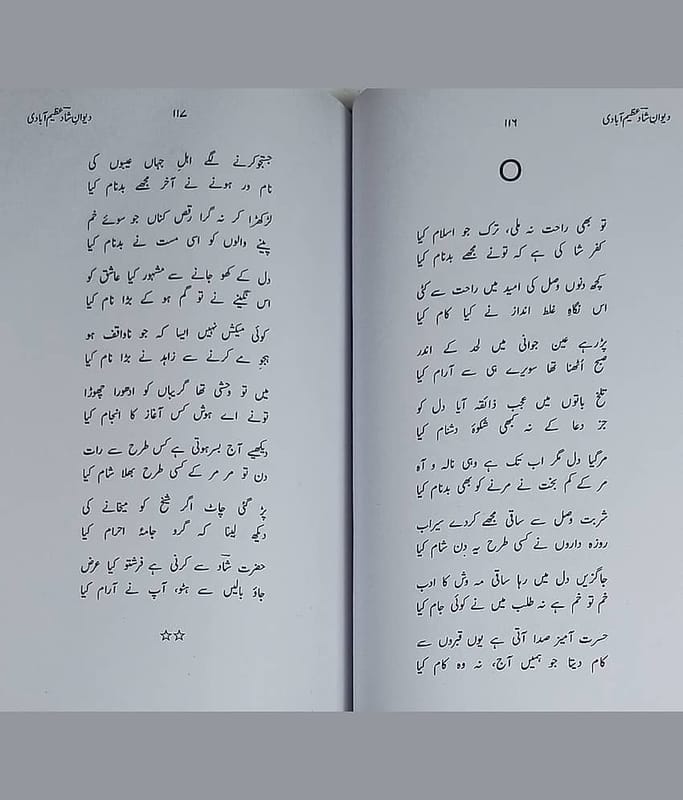 دیوانِ شادؔ عظیم آبادی
۱۱۶
تو بھی راحت نہ ملی، ترک جو اسلام کیا
کفر شا کی ہے کہ تونے مجھے بدنام کیا
کچھ دنوں وصل کی امید میں راحت سے کٹی
اس نگاہِ غلط انداز نے کیا کام کیا
پڑرہے عین جوانی میں لحد کے اندر
صبح اُٹھنا تھا سویرے ہی سے آرام کیا
تلخ باتوں میں عجب ذائقہ آیا دل کو
جز دعا کے نہ کبھی شکوۂ دشنام کیا
مرگیا دل مگر اب تک ہے وہی نالہ و آہ
مر کے کم بخت نے مرنے کو بھی بدنام کیا
شربت وصل سے ساقی مجھے کردے سیراب
روزہ داروں نے کسی طرح یہ دِن شام کیا
جاگزیں دل میں رہا ساقی مہ وش کا ادب
خم تو خم ہے نہ طلب میں نے کوئی جام کیا
حسرت آمیز صدا آتی ہے یوں قبروں سے
کام دیتا جو ہمیں آج، نہ وہ کام کیا
دیوانِ شادؔ عظیم آبادی
۱۱۷
جستجو کرنے لگے اہلِ جہاں عیبوں کی
نام ور ہونے نے آخر مجھے بدنام کیا
لڑکھڑا کر نہ گرا رقص کناں جو سوئے خم
پینے والوں کو اسی مست نے بدنام کیا
دل کے کھو جانے سے مشہور کیا عاشق کو
اس نگینے نے تو گم ہو کے بڑا نام کیا
کوئی میکش نہیں ایسا کہ جو ناواقف ہو
ہجو مے کرنے سے زاہد نے بڑا نام کیا
میں تو وحشی تھا گریباں کو ادھورا چھوڑا
تونے اے ہوش کس آغاز کا انجام کیا
دیکھیے آج بسر ہوتی ہے کس طرح سے رات
دن تو مر مر کے کسی طرح بھلا شام کیا
پڑ گئی چاٹ اگر شیخ کو میخانے کی
دیکھ لینا کہ گرو جامۂ احرام کیا
حضرت شادؔ سے کرنی ہے فرشتو کیا عرض
جاؤ بالیں سے ہٹو، آپ نے آرام کیا